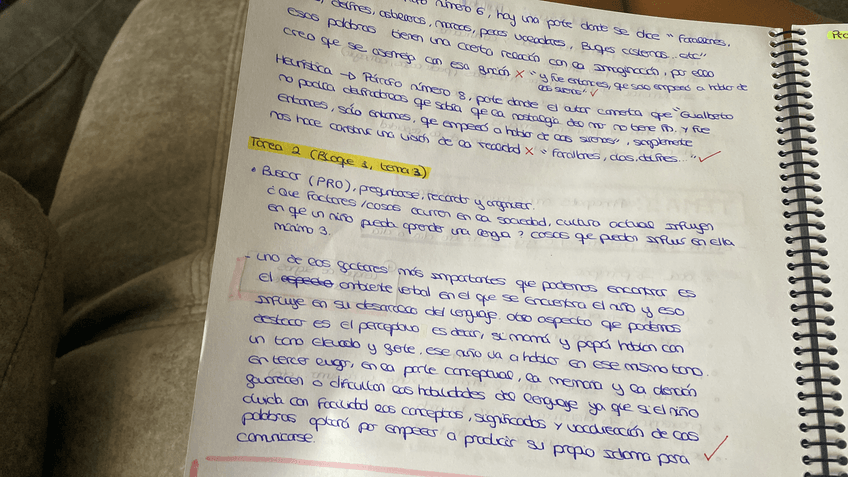 número 6, hay una parte donde se dice "Farallones,
delfines, asberos, marcas, peces voladores, Buques cisternas... etc"
esas palabras tienen una cierta relación con la imaginación, por eso
creo que se asemeja con esa función x "y fue entonces, que sólo empezó a hablar de
los sueños" ✓
Heurística → Párrafo número 8, parte donde el autor comenta que "Gualberto
no podría defraudarnos que sabía que la nostalgia del mar no tiene fin, y fue
entonces, sólo entonces, que empezó a hablar de los sueños", simplemente
nos hace cambiar una visión de la realidad x "Farallones, olas, delfines..." ✓
Tarea 2 (Bloque 1, tema 3)
• Buscar (PRO), preguntarse, recordar y organizar.
¿Qué factores/cosas ocurren en la sociedad, cultura actual influyen
en que un niño pueda aprender una lengua? cosas que puedan influir en ella
mínimo 3.
- Uno de los factores más importantes que podemos encontrar es
el ambiente verbal en el que se encuentra el niño y eso
influye en su desarrollo del lenguaje. Otro aspecto que podemos
destacar es el perceptivo es decir, si mamá y papá hablan con
un tono elevado y fuerte, ese niño va a hablar en ese mismo tono.
En tercer lugar, en la parte conceptual, la memoria y la atención
favorecen o dificultan las habilidades del lenguaje ya que si el niño
olvida con facilidad los conceptos, significados y vocalización de las
palabras optará por empezar a producir su propio idioma para
comunicarse. ✓